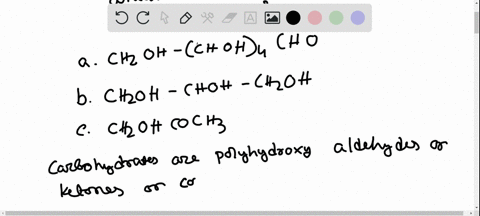 a. CH2OH-(CHOH)4 CHO
b. CH2OH - CHOH - CH2OH
c. CH2OH COCH3
Carbohydrates are polyhydroxy aldehydes or
ketones or co